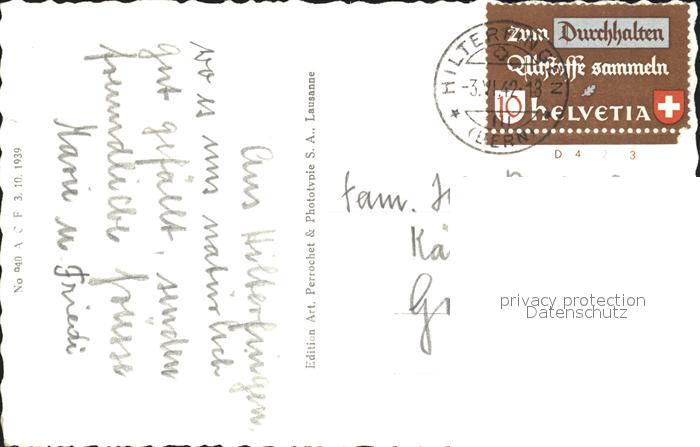 Aus Hilterfingen,
wo es uns natürlich
gut gefällt, senden
freundliche Grüsse
Marie u Friedi
No 940 A C F 3. 10. 1939
Edition Art. Perrochet & Phototypie S. A., Lausanne
Zum Durchhalten
Altstoffe sammeln
10 HELVETIA
HILTERFINGEN
-3.VI.42-18
(BERN)
D 4 2 3
Fam.
privacy protection
Datenschutz